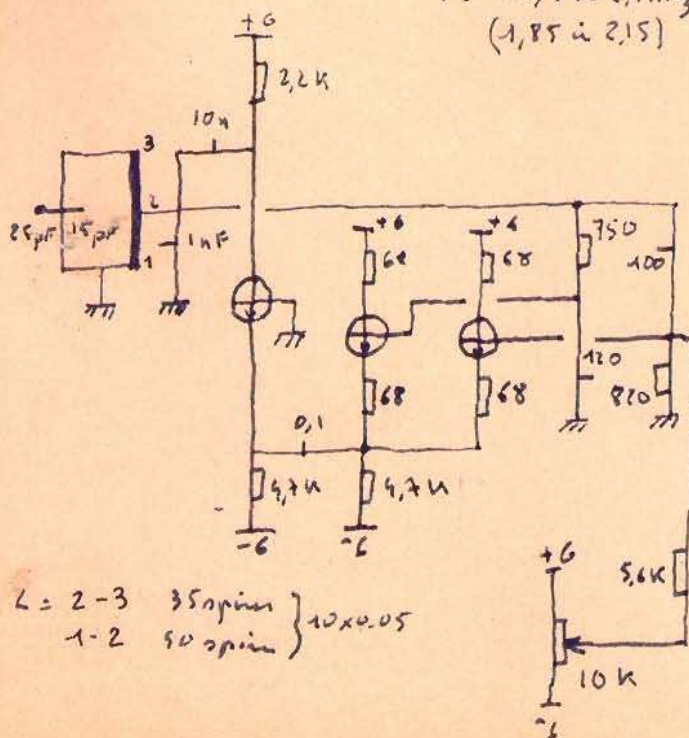 (1,85 à 2,15)
+6
2,2K
10n
3
2
1
25pF 15pF
1nF
+6
+6
68
68
750
100
68
68
120
820
0,1
4,7K
4,7K
-6
-6
L = 2-3 35 spires
1-2 50 spires } 10x0.05
+6
5,6K
10K
-6